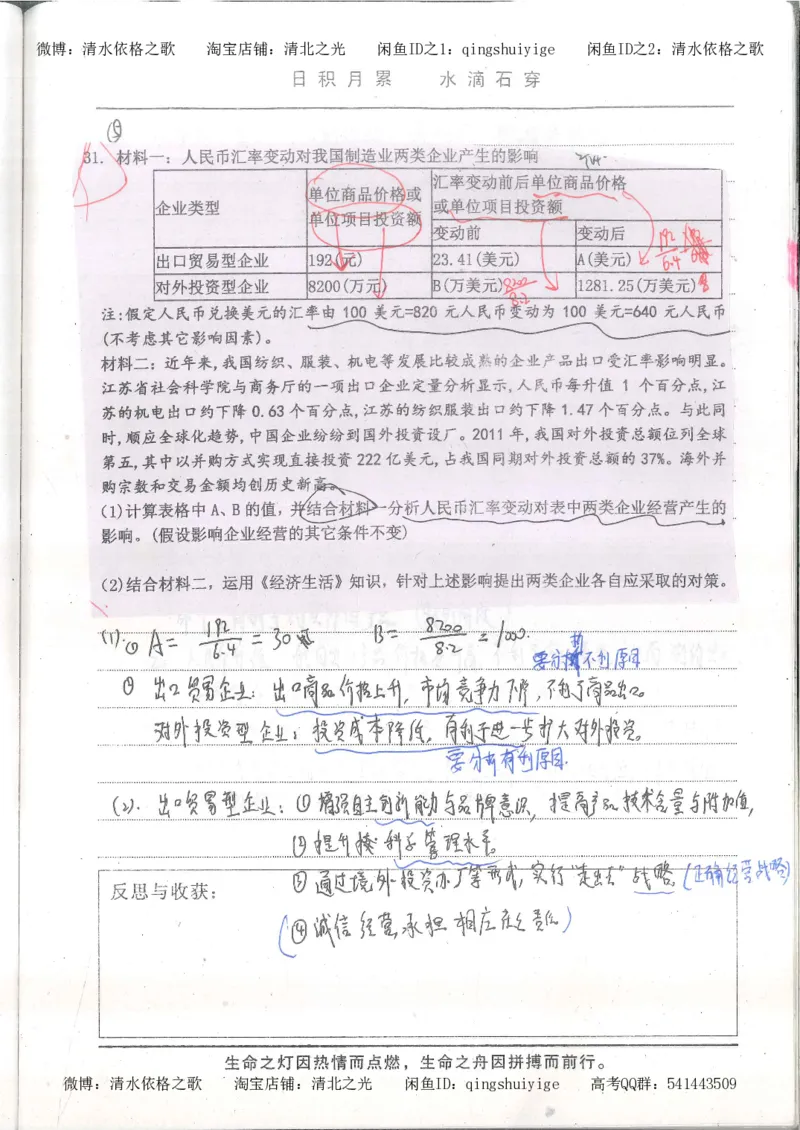 微博：清水依格之歌 淘宝店铺：清北之光 闲鱼ID之1：qingshuiyige 闲鱼ID之2：清水依格之歌
日积月累 水滴石穿
31. 材料一：人民币汇率变动对我国制造业两类企业产生的影响
企业类型 单位商品价格或单位项目投资额 汇率变动前后单位商品价格或单位项目投资额
变动前 变动后
出口贸易型企业 192(元) 23.41(美元) A(美元)
192/6.4
对外投资型企业 8200(万元) B(万美元) 1281.25(万美元)
8200/8.2
注:假定人民币兑换美元的汇率由 100 美元=820 元人民币变动为 100 美元=640 元人民币
(不考虑其它影响因素)。
材料二：近年来,我国纺织、服装、机电等发展比较成熟的企业产品出口受汇率影响明显。
江苏省社会科学院与商务厅的一项出口企业定量分析显示,人民币每升值 1 个百分点,江
苏的机电出口约下降 0.63 个百分点,江苏的纺织服装出口约下降 1.47 个百分点。与此同
时,顺应全球化趋势,中国企业纷纷到国外投资设厂。2011 年,我国对外投资总额位列全球
第五,其中以并购方式实现直接投资 222 亿美元,占我国同期对外投资总额的 37%。海外并
购宗数和交易金额均创历史新高。
(1)计算表格中 A、B 的值，并结合材料一分析人民币汇率变动对表中两类企业经营产生的
影响。(假设影响企业经营的其它条件不变)
(2)结合材料二，运用《经济生活》知识，针对上述影响提出两类企业各自应采取的对策。
(1) ① A= 192/6.4 = 30 B= 8200/8.2 = 1000.
要分析不利原因
② 出口贸易企业：出口商品价格上升，市场竞争力下降，不利于商品出口。
对外投资型企业：投资成本降低，有利于进一步扩大对外投资。
要分析有利原因.
(2). 出口贸易型企业：①增强自主创新能力与品牌意识，提高产品技术含量与附加值，
②提升 科学管理水平。
反思与收获：
③通过境外投资办厂等形式，实行“走出去”战略。(正确经营战略)
(④诚信经营，承担相应社会责任)
生命之灯因热情而点燃，生命之舟因拼搏而前行。
微博：清水依格之歌 淘宝店铺：清北之光 闲鱼ID：qingshuiyige 高考QQ群：541443509